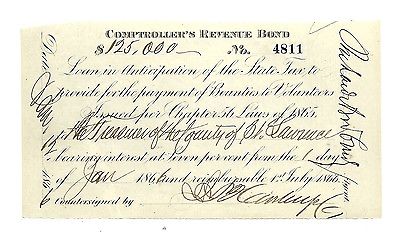 COMPTROLLER'S REVENUE BOND
$125,000 No. 4811
Loan in Anticipation of the State Tax, to
provide for the payment of Bounties to Volunteers
issued per Chapter 56 Laws of 1865.
The Treasurer of the County of St. Lawrence
bearing interest at seven per cent from the 1 day
of Jan 1866 and reimbursable 1st July 1866.
Countersigned by
Dated
186